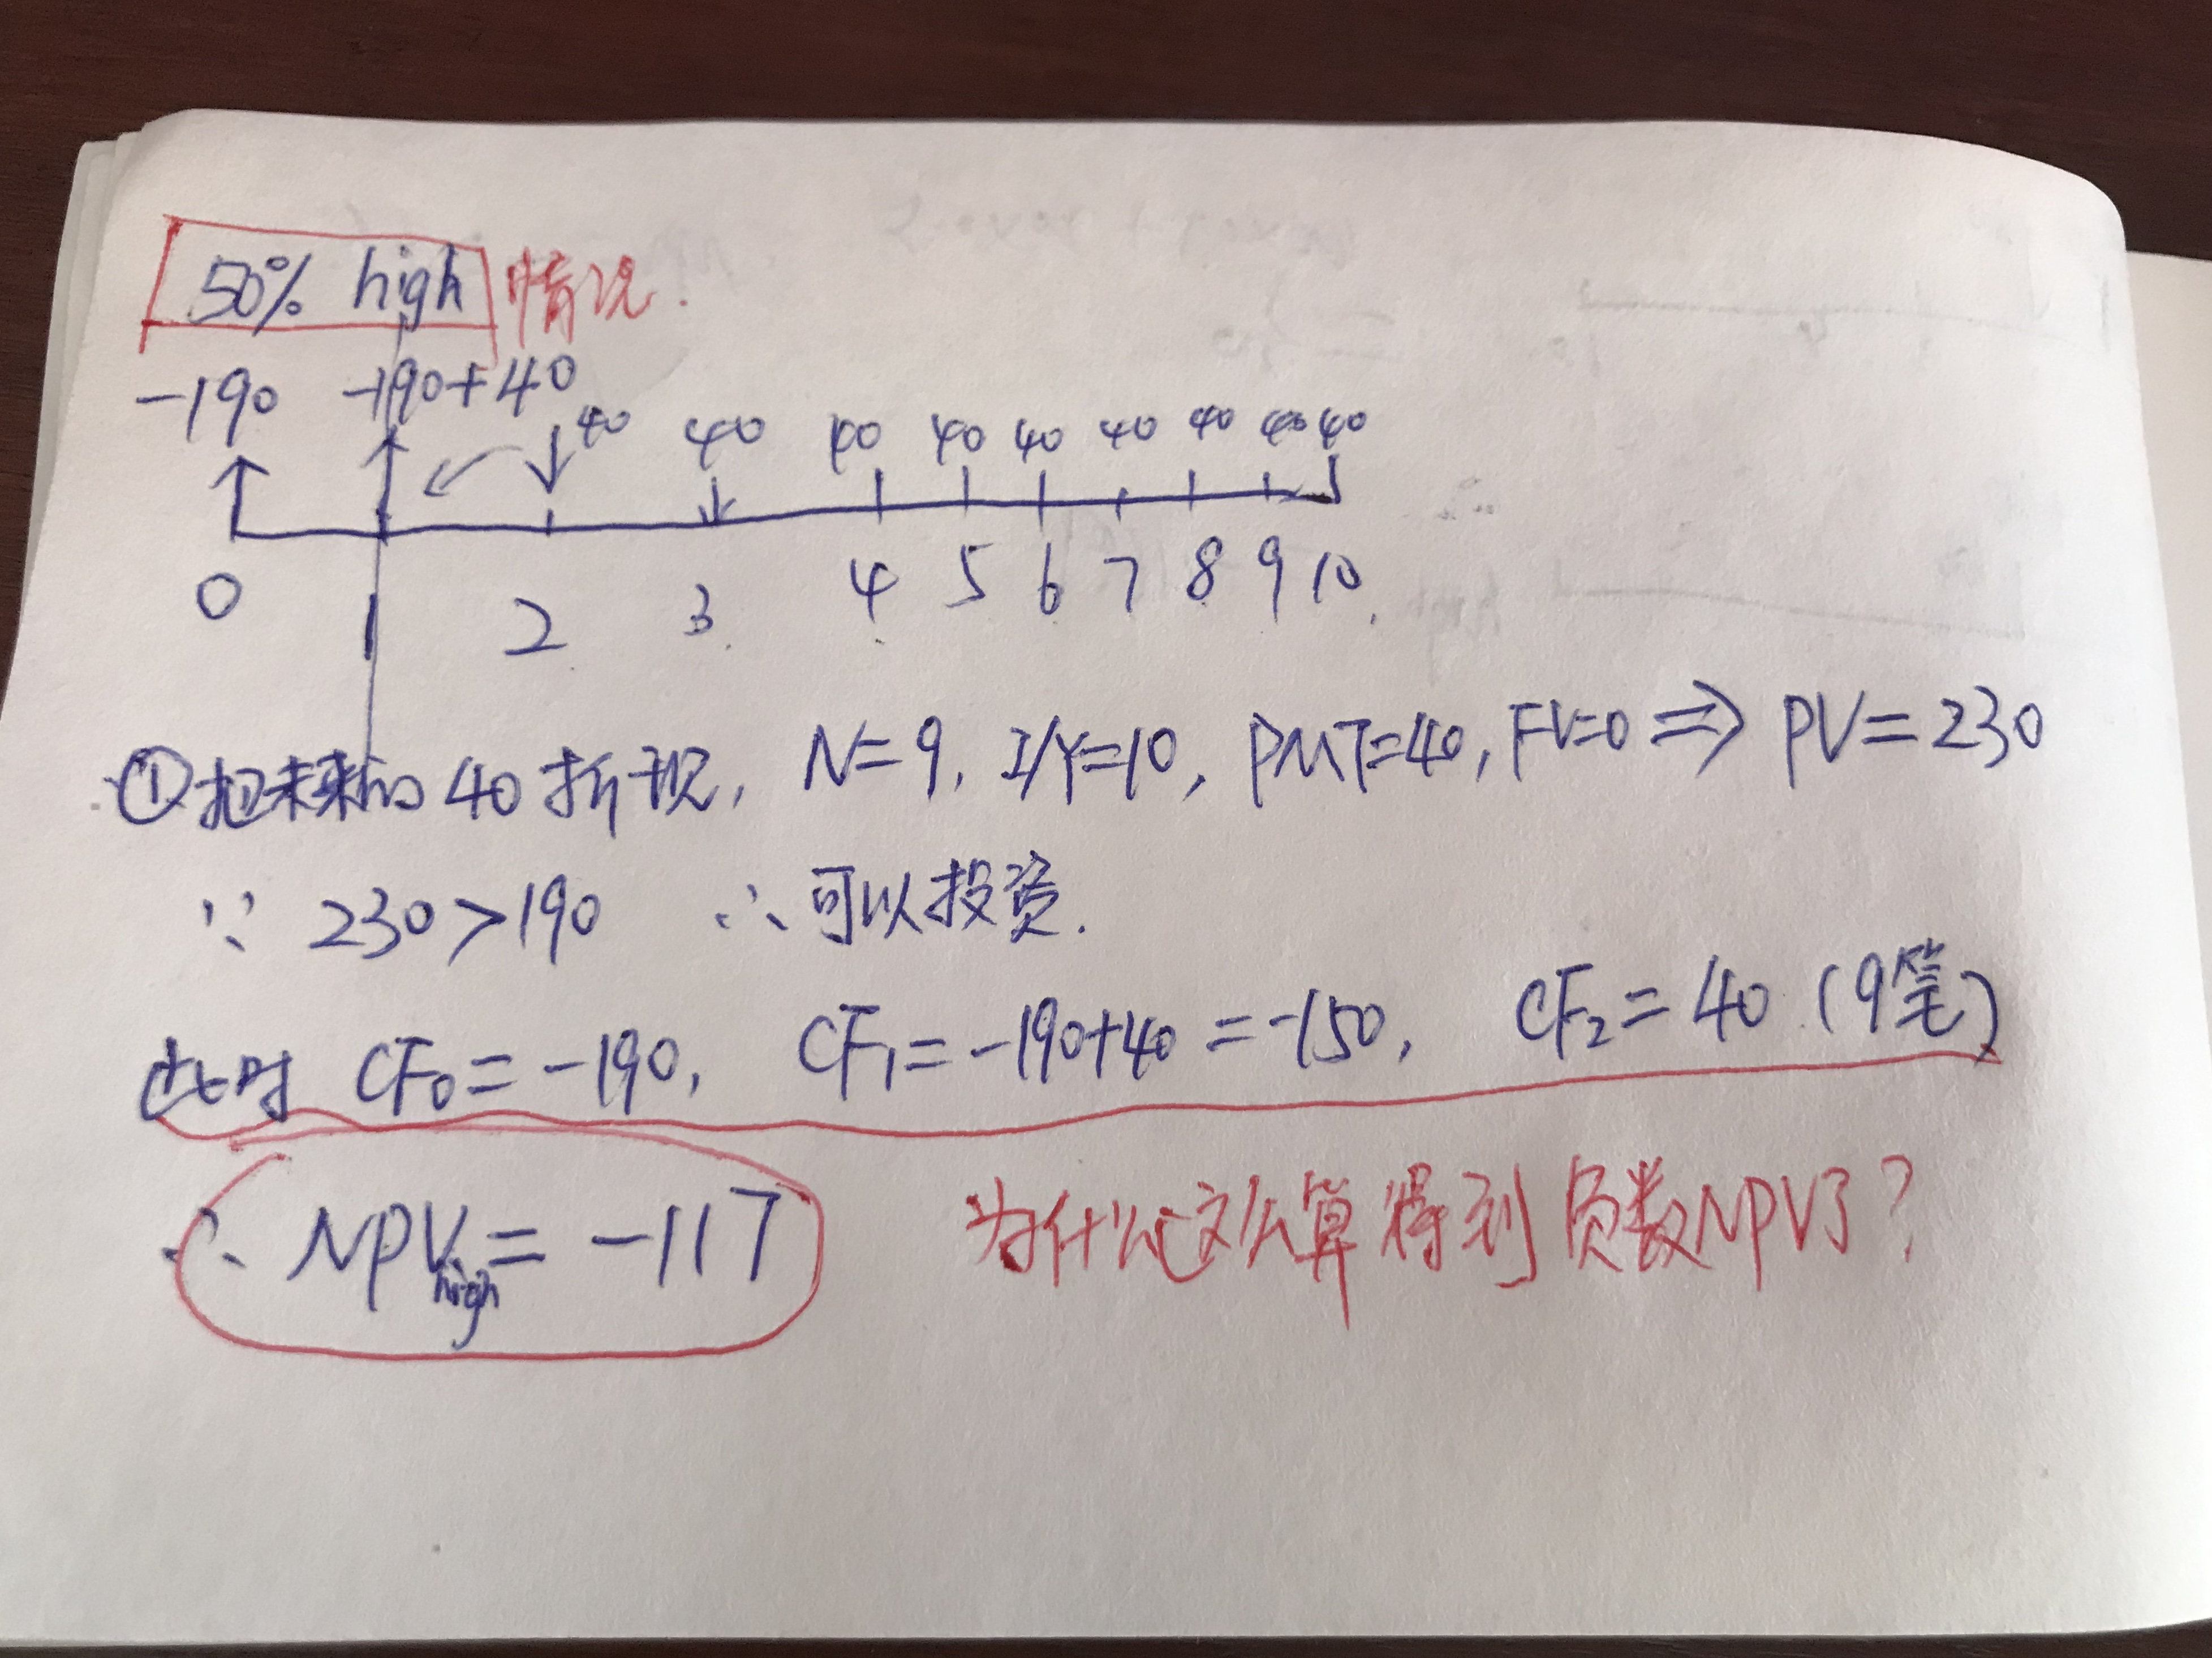 50% high 情况.
-190 -190+40 40 40 40 40 40 40 40 40 40
0 1 2 3 4 5 6 7 8 9 10
①把未来的40折现, N=9, I/Y=10, PMT=40, FV=0 ⇒ PV=230
∵ 230>190 ∴可以投资.
此时 CF₀=-190, CF₁=-190+40=-150, CF₂=40 (9笔)
∴ NPVhigh=-117 为什么这么算得到负数NPV了?